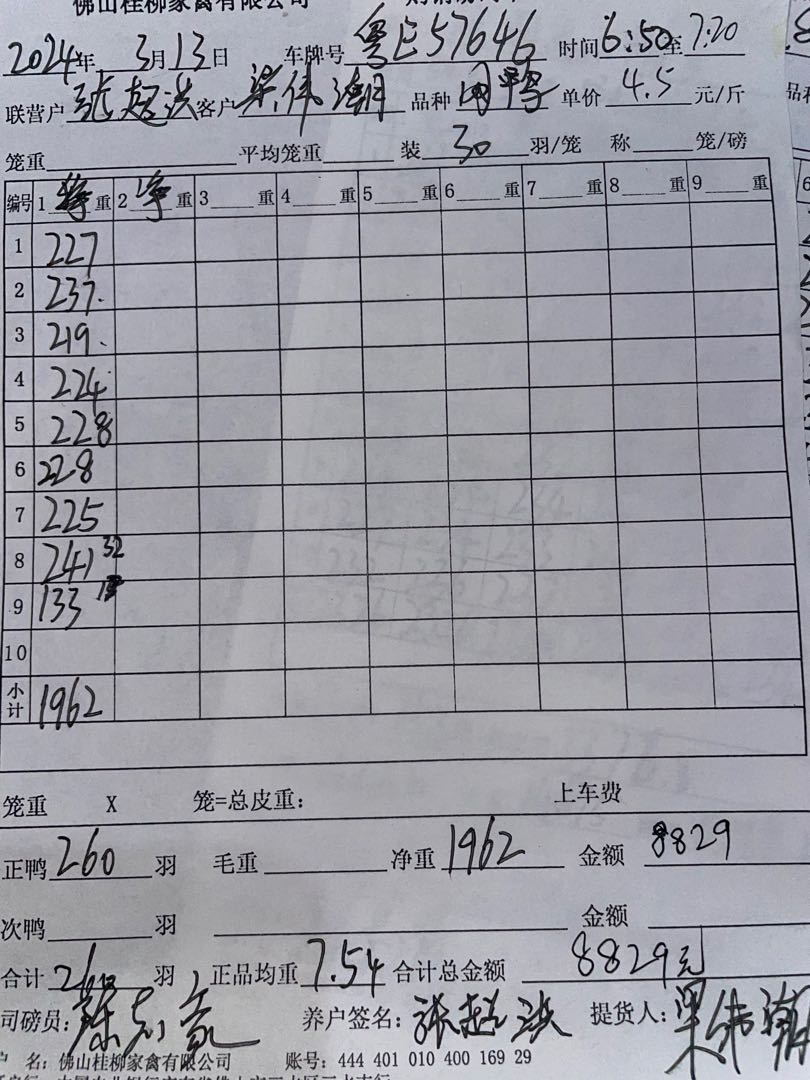 佛山桂柳家禽有限公司
2024年 3月13日 车牌号 粤E57646 时间6:50至7:20
联营户 张超洪 客户 梁伟潮 品种 单价 4.5 元/斤
笼重 平均笼重 装 30 羽/笼 称 笼/磅
编号 1 重 2 净 重 3 重 4 重 5 重 6 重 7 重 8 重 9 重
1 227
2 237.
3 219.
4 224
5 228
6 228
7 225
8 241 32
9 133
10
小计 1962
笼重 X 笼=总皮重: 上车费
正鸭 260 羽 毛重 净重 1962 金额 8829
次鸭 羽 金额
合计 羽 正品均重 7.54 合计总金额 8829元
司磅员: 养户签名: 张超洪 提货人: 梁伟潮
户 名: 佛山桂柳家禽有限公司 账号: 444 401 010 400 169 29